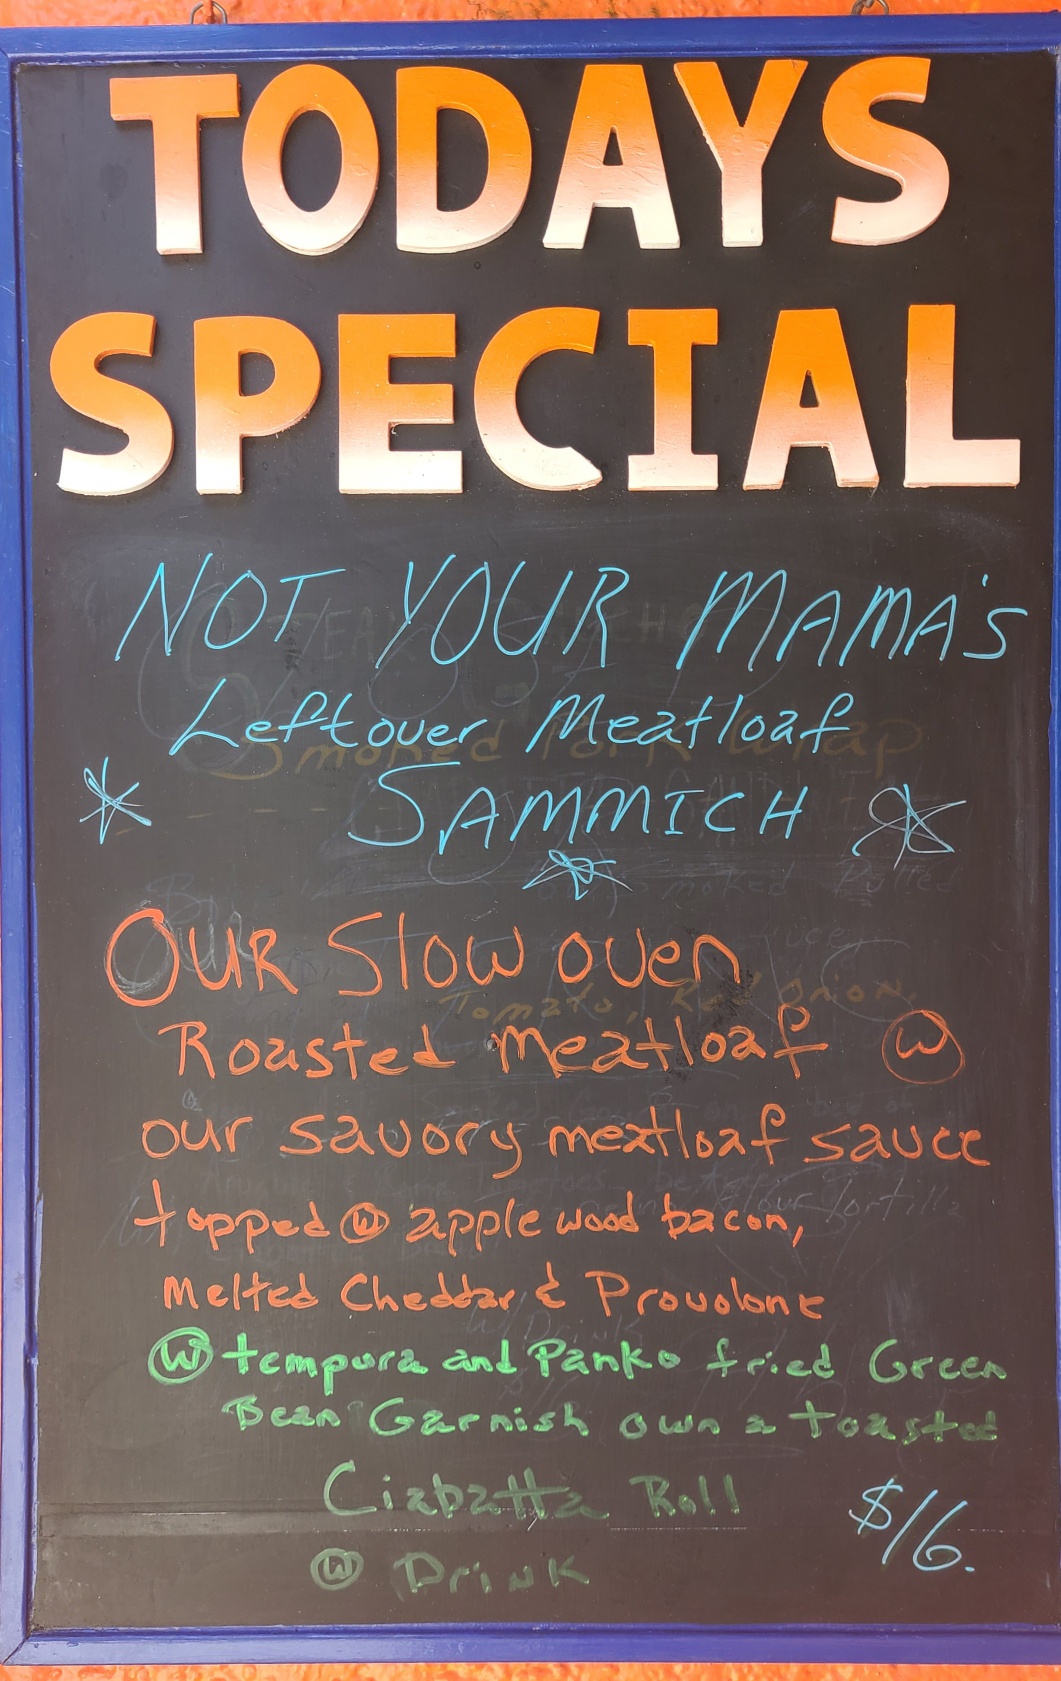 TODAYS
SPECIAL
NOT YOUR MAMA'S
Leftover Meatloaf
SAMMICH
OUR Slow oven
Roasted Meatloaf W
our savory meatloaf sauce
topped W applewood bacon,
Melted Cheddar & Provolone
W tempura and Panko fried Green
Bean Garnish own a toasted
Ciabatta Roll
$16.
W Drink